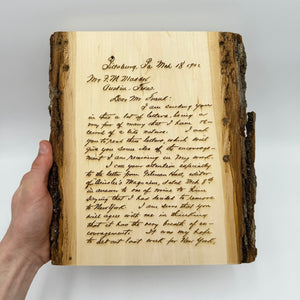 Pittsburg, Pa Mch 18 1902
Mr. F. M. Madden
Austin Texas
Dear Mr
I am sending you
in this a lot of letters, being a
very few of many that I have
of a like nature. I ask
you to read these letters, which will
give you some idea of the encourage-
ment I am receiving in my work.
I call your attention especially
to the letter from editor
of Magazine, dated Mch
in answer to one of mine to him
saying that I had decided to remove
to New York. I am sure that you
will agree with me in thinking
that it has the very breath of en-
couragement. It was my hope
to set out last week for New York,